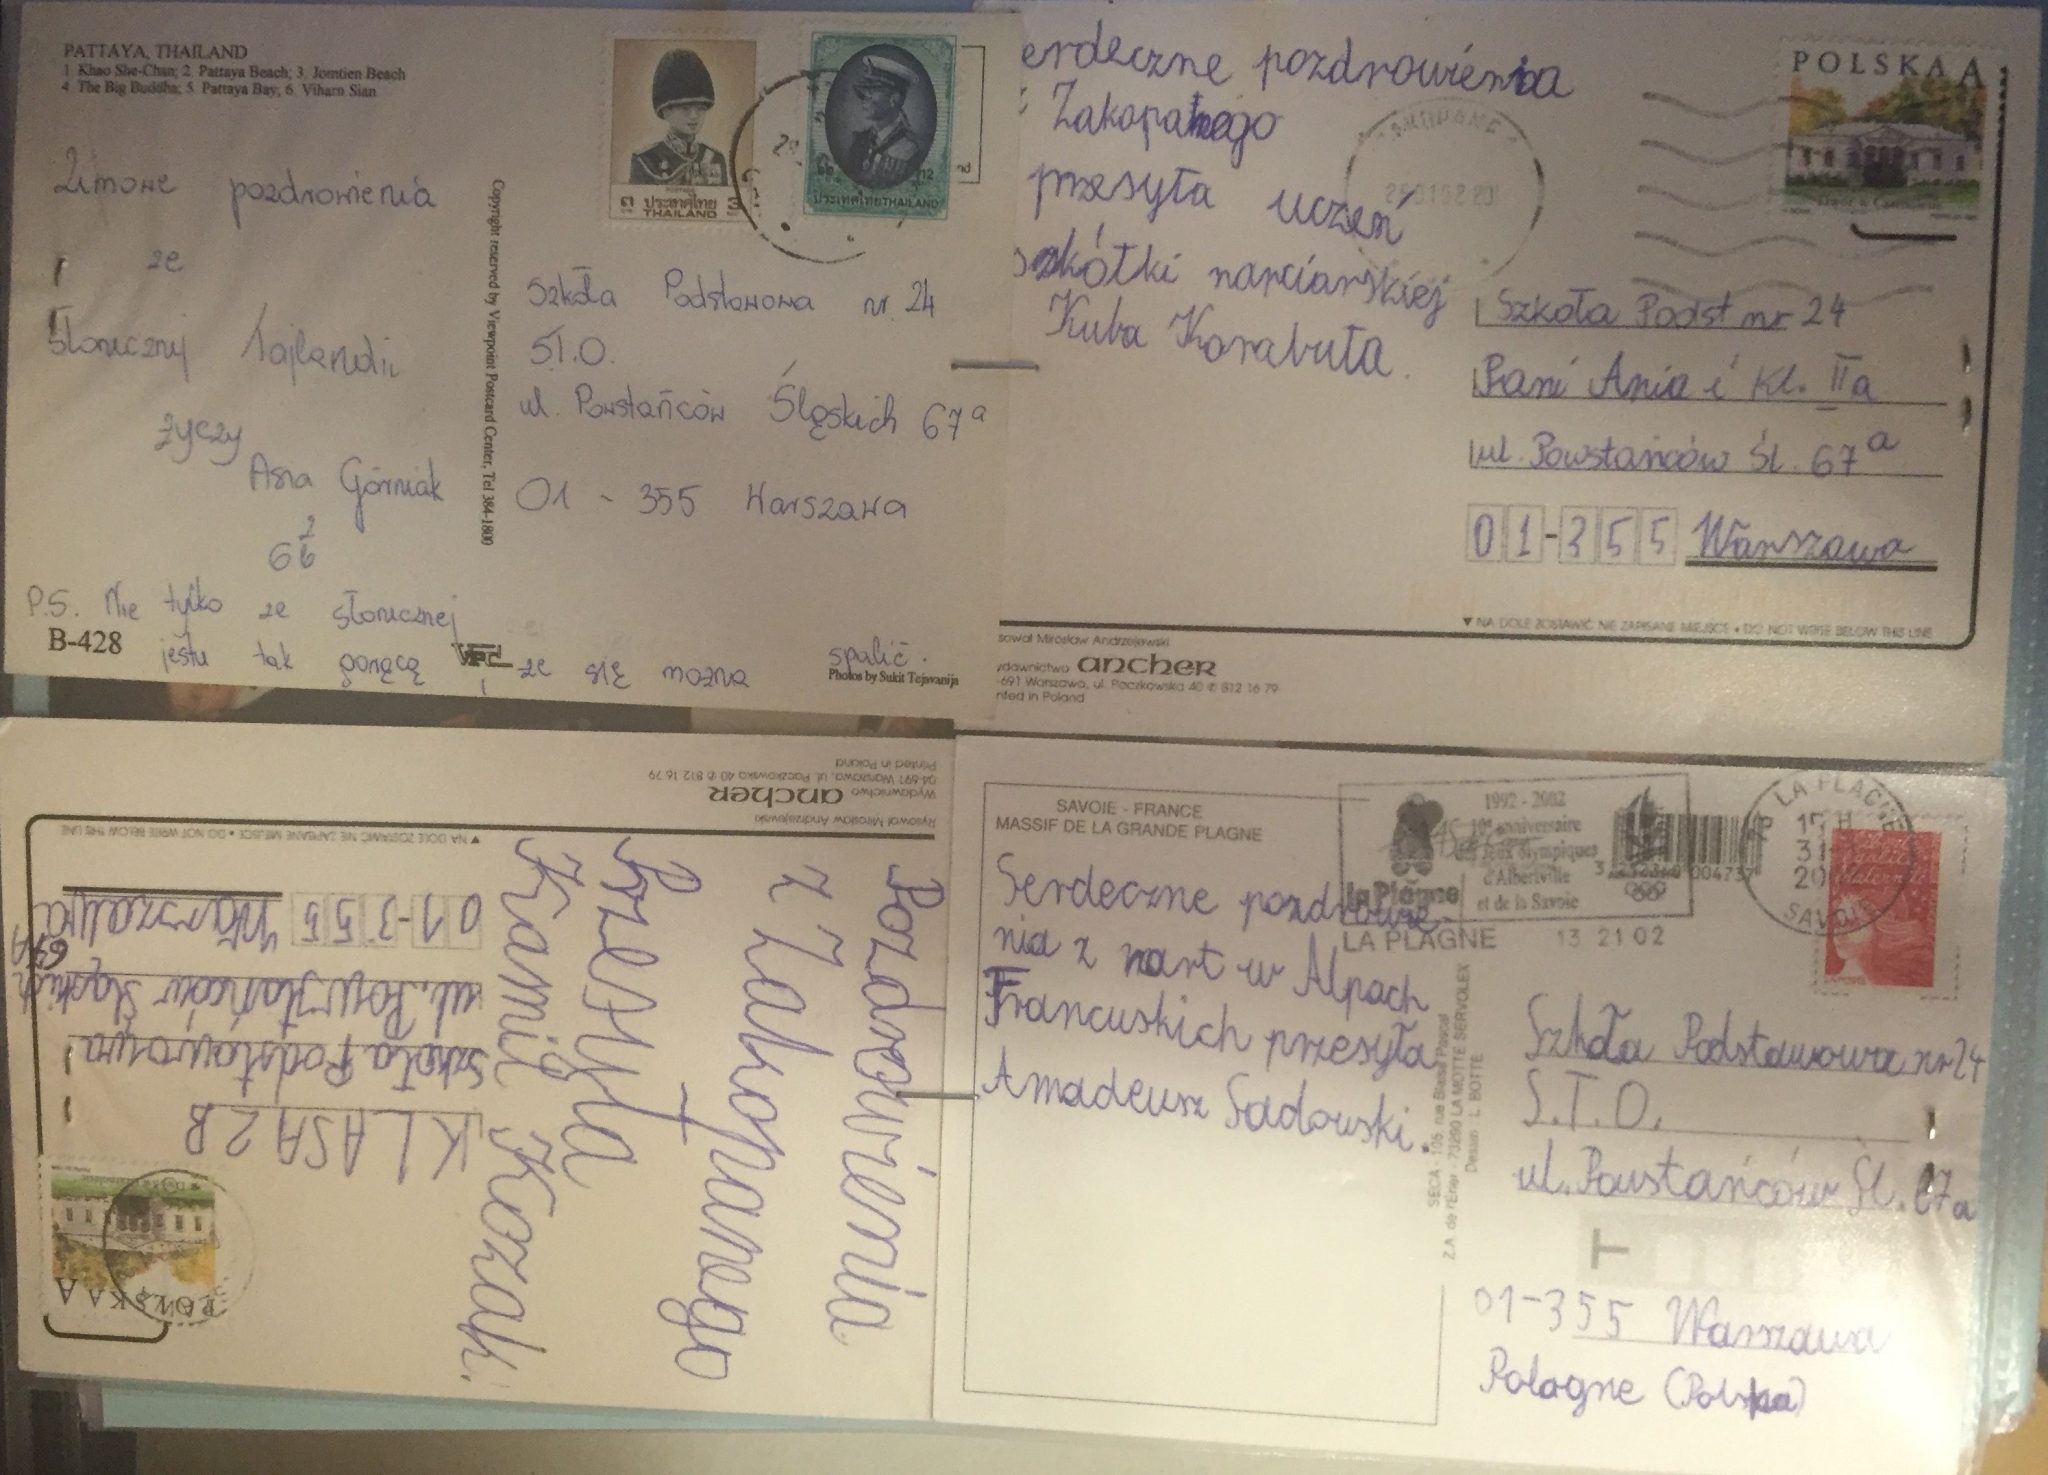 PATTAYA, THAILAND
1. Khao She-Chan; 2. Pattaya Beach; 3. Jomtien Beach
4. The Big Buddha; 5. Pattaya Bay; 6. Viharn Sian
Zimowe pozdrowienia
ze
słonecznej Tajlandii
życzy
Asia Górniak
P.S. Nie tylko ze słonecznej
B-428
jestu tak gorącą że się można spalić.
Photos by Sukit Tejavanija
Copyright reserved by Viewpoint Postcard Center, Tel 384-1800
ประเทศไทย
THAILAND
3
12
ประเทศไทย THAILAND
Szkoła Podstawowa nr. 24
S.T.O.
ul. Powstańców Śląskich 67a
01 - 355 Warszawa
erdeczne pozdrowienia
z Zakopanego
przesyła uczeń
szkółki narciarskiej
Kuba Korabuta.
POLSKA A
ZAKOPANE
Szkoła Podst nr 24
Pani Ania i kl. IIa
ul. Powstańców Śl. 67a
01-355 Warszawa
▼ NA DOLE ZOSTAWIĆ NIE ZAPISANE MIEJSCE • DO NOT WRITE BELOW THIS LINE
sował Mirosław Andrzejewski
ydawnictwo ancher
-691 Warszawa, ul. Paczkowska 40 ✆ 812 16 79
nted in Poland
Pozdrowienia
z Zakopanego
Przesyła
Kamil Kozak.
POLSKA A
KLASA 2B
Szkoła Podstawowa
ul. Powstańców Śląskich
67A
01-355 Warszawa
▼ NA DOLE ZOSTAWIĆ NIE ZAPISANE MIEJSCE • DO NOT WRITE BELOW THIS LINE
Rysował Mirosław Andrzejewski
Wydawnictwo ancher
04-691 Warszawa, ul. Paczkowska 40 ✆ 812 16 79
Printed in Poland
SAVOIE - FRANCE
MASSIF DE LA GRANDE PLAGNE
Serdeczne pozdrowie-
nia z nart w Alpach
Francuskich przesyła
Amadeusz Sadowski.
1992 - 2002
10e anniversaire
des Jeux olympiques
d'Albertville
et de la Savoie
la Plagne
LA PLAGNE 13 21 02
LA PLAGNE
15 H
31
SAVOIE
SECA - 105, rue Blaise Pascal
Z.A. de l'Erier - 73290 LA MOTTE SERVOLEX
Dessin : L. BOTTE
Szkoła Podstawowa nr 24
S.T.O.
ul. Powstańców Śl. 67a
T
01-355 Warszawa
Pologne (Polska)